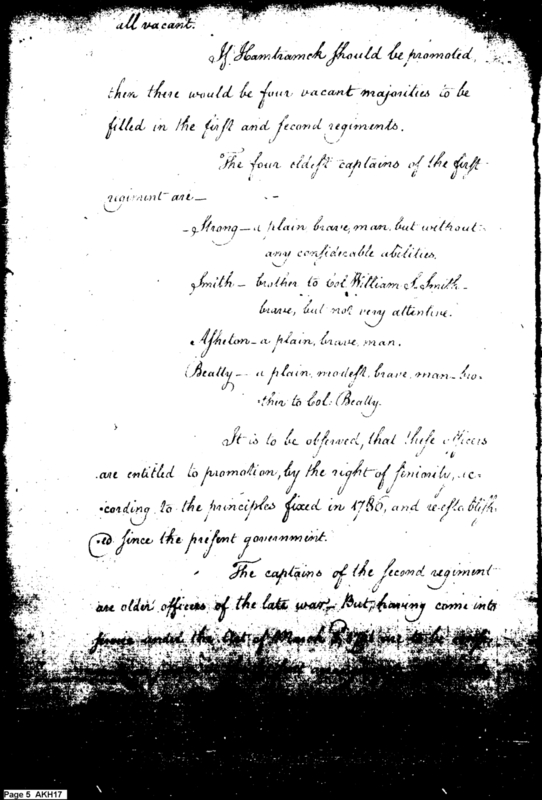 all vacant.
If Hamtramck should be promoted,
then there would be four vacant majorities to be
filled in the first and second regiments.
The four eldest captains of the first
regiment are—
Strong—a plain brave man, but without
any considerable abilities.
Smith—brother to Col. William S. Smith—
brave, but not very attentive.
Asheton—a plain, brave man.
Beatty—a plain, modest, brave, man—bro-
ther to Col: Beatty.
It is to be observed, that these officers
are entitled to promotion, by the right of seniority, ac-
cording to the principles fixed in 1786, and re-establish-
ed since the present government.
The captains of the second regiment
are older officers of the late war—But, having come into
service under the Act of March
Page 5 AKH17